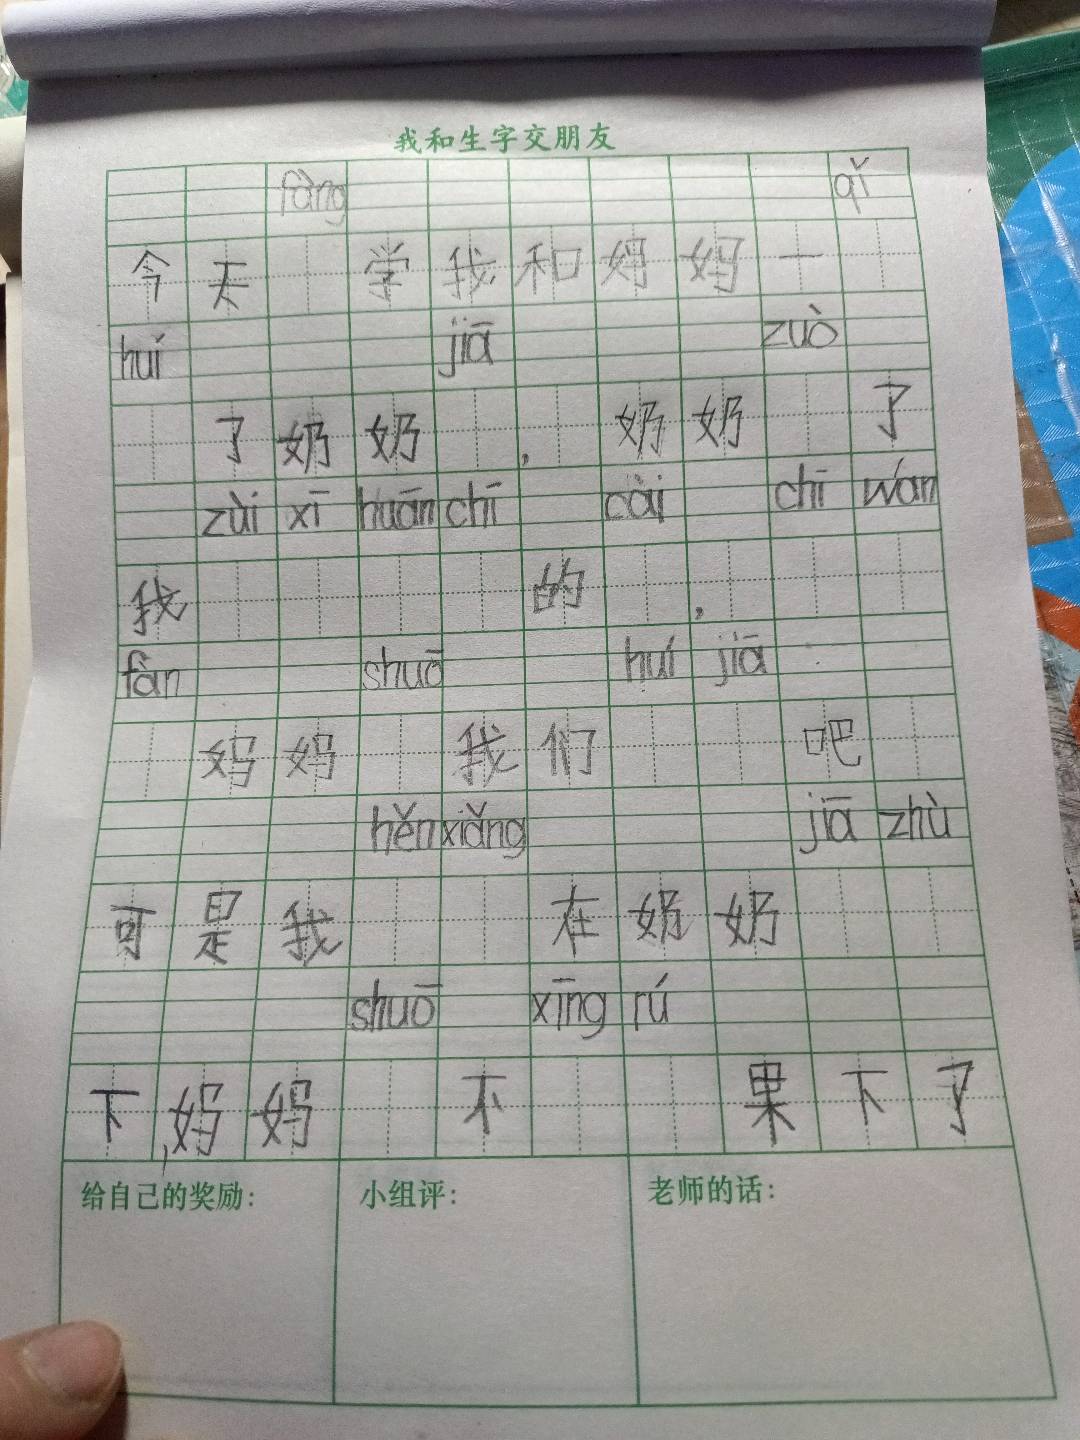 我和生字交朋友
fàng qǐ
今天 学我和妈妈一
huí jiā zuò
了奶奶 , 奶奶 了
zùi xī huān chī cài chī wán
我 的 ,
fàn shuō huí jiā
妈妈 我们 吧
hěn xiǎng jiā zhù
可是我 在奶奶
shuō xīng rú
下,妈妈 不 果下了
给自己的奖励: 小组评: 老师的话: